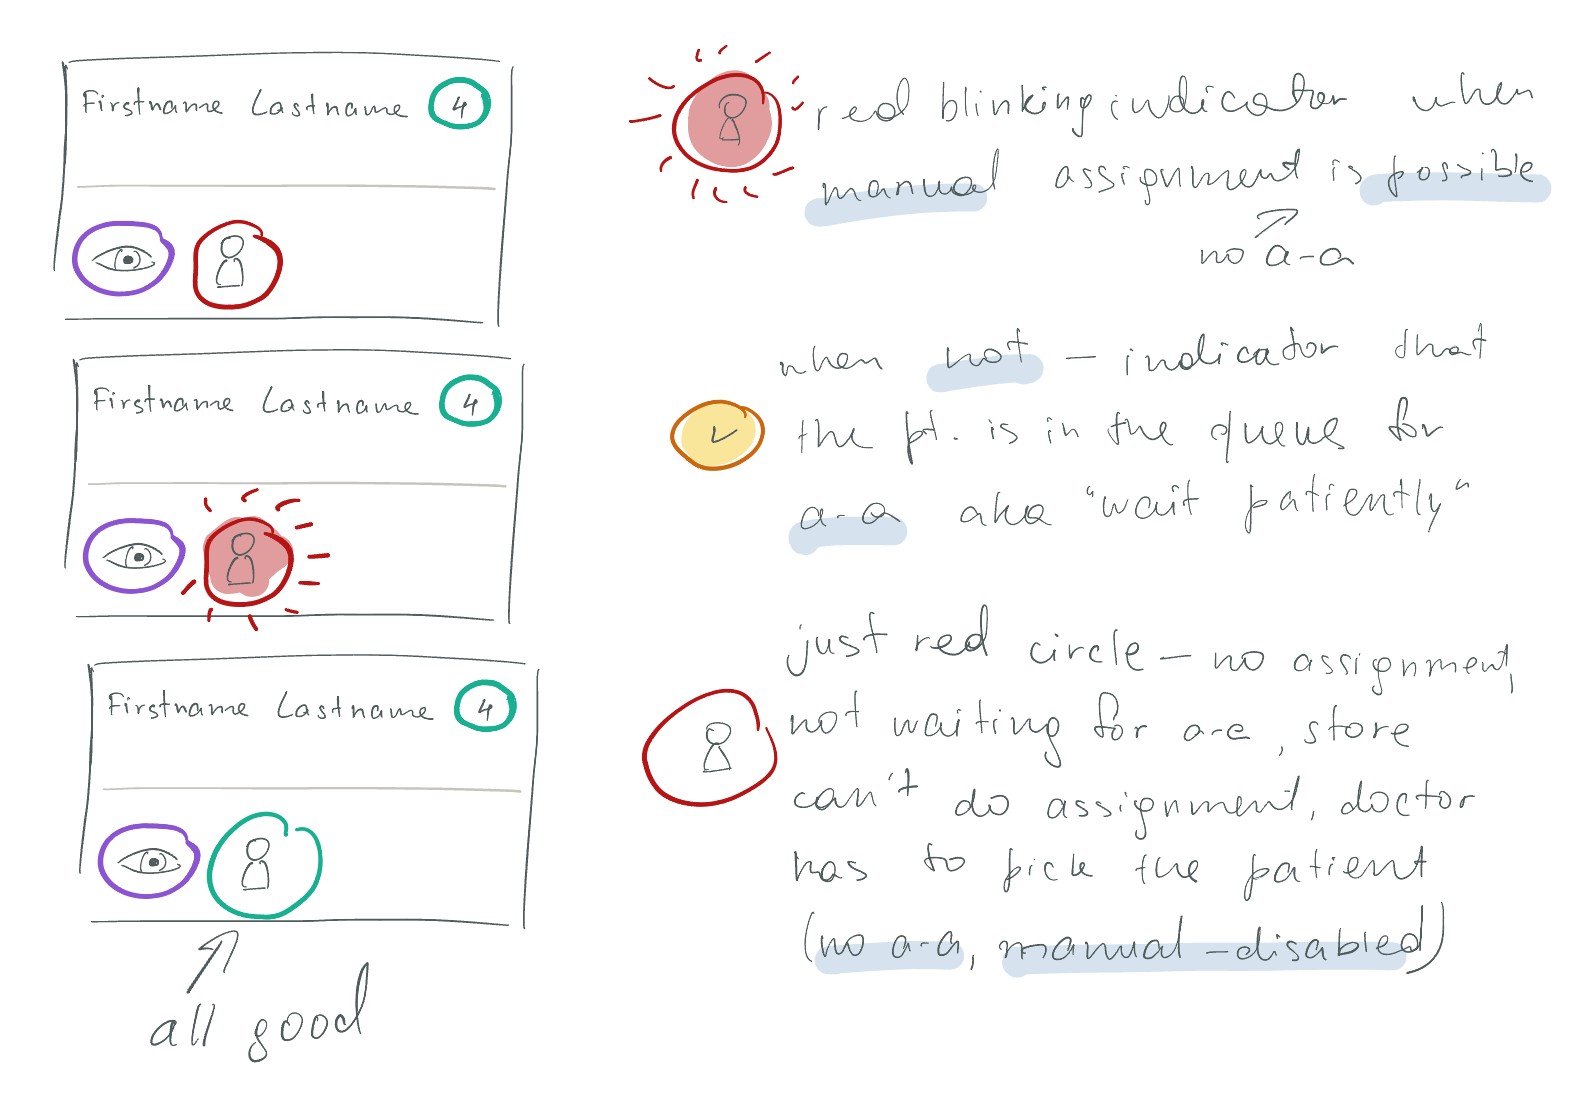 Firstname Lastname 4
Firstname Lastname 4
Firstname Lastname 4
all good
red blinking indicator when
manual assignment is possible
no a-a
when not – indicator that
the pt. is in the queue for
a-a aka "wait patiently"
just red circle – no assignment,
not waiting for a-a, store
can't do assignment, doctor
has to pick the patient
(no a-a, manual – disabled)